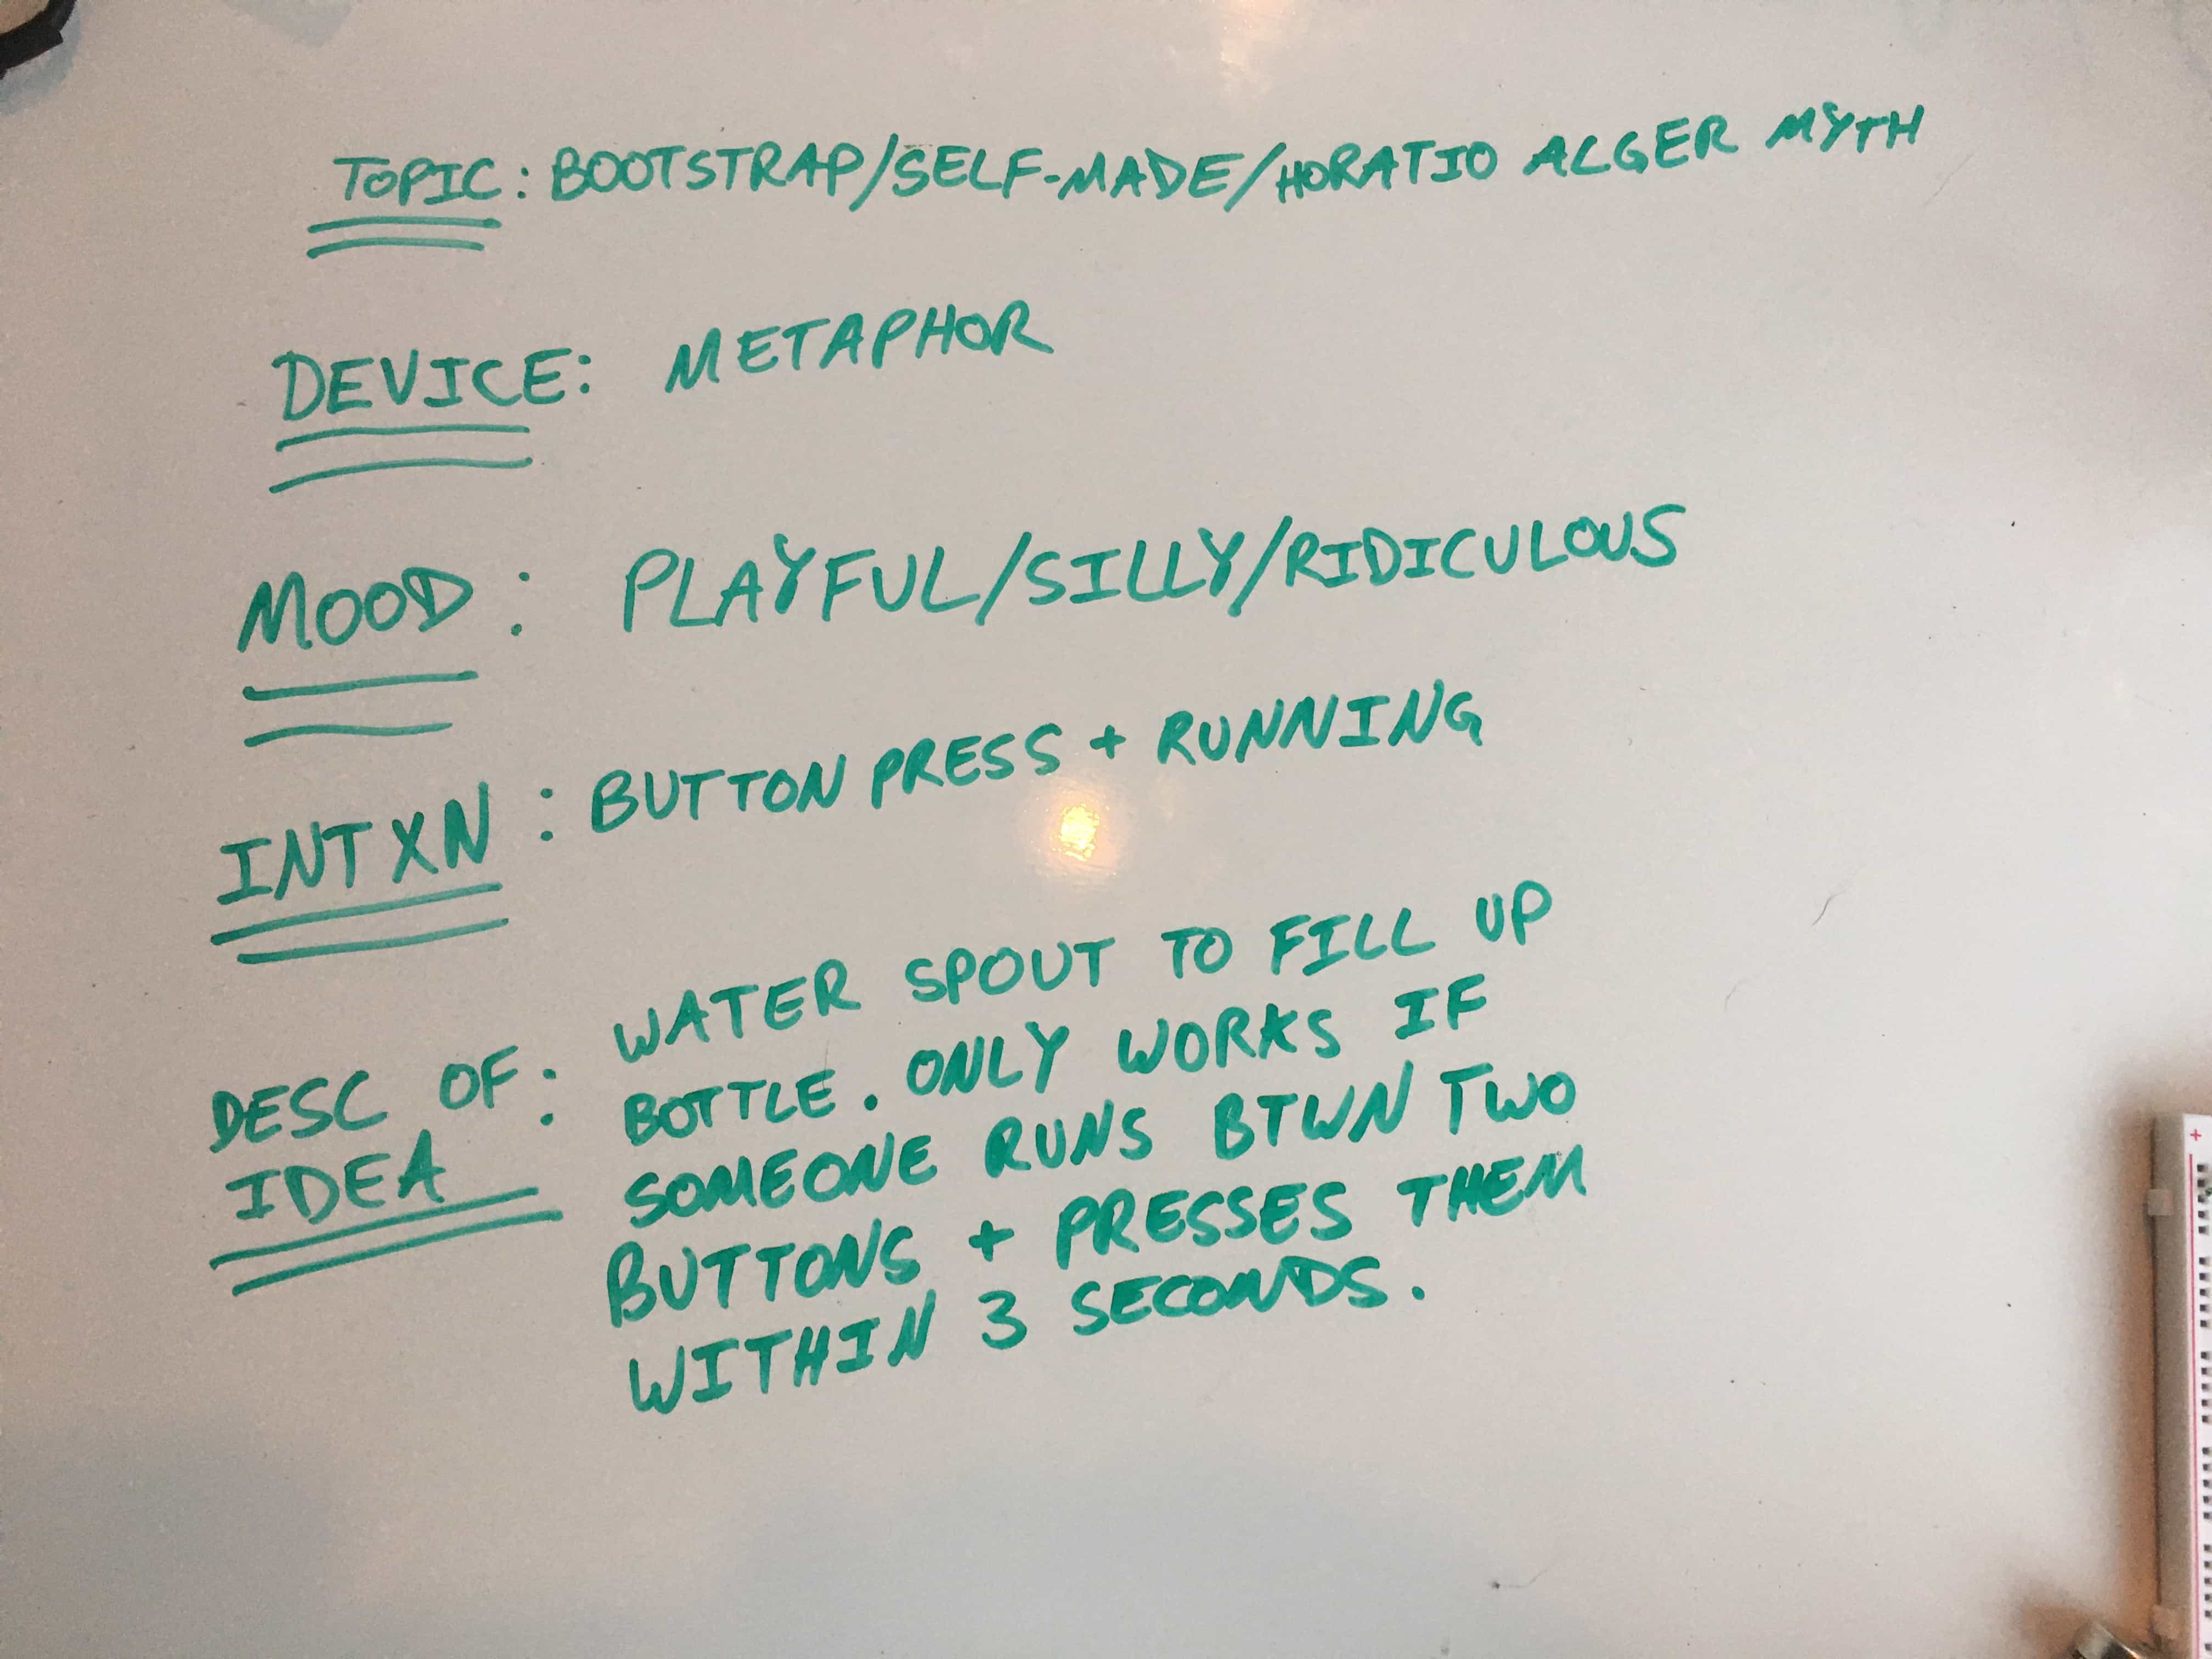 TOPIC: BOOTSTRAP/SELF-MADE/HORATIO ALGER MYTH
DEVICE: METAPHOR
MOOD: PLAYFUL/SILLY/RIDICULOUS
INTXN: BUTTON PRESS + RUNNING
DESC OF IDEA: WATER SPOUT TO FILL UP
BOTTLE. ONLY WORKS IF
SOMEONE RUNS BTWN TWO
BUTTONS + PRESSES THEM
WITHIN 3 SECONDS.
+